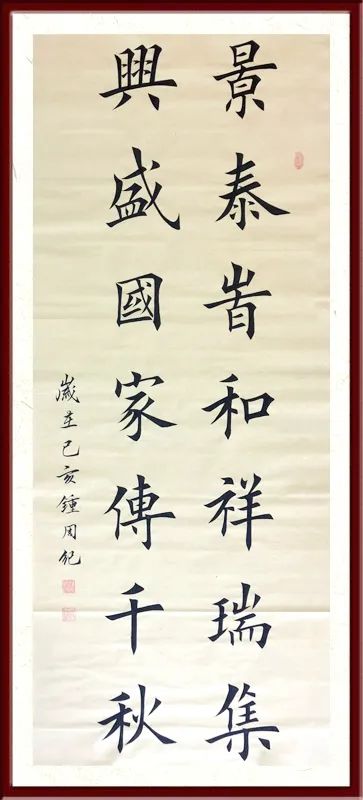 景泰旹和祥瑞集
興盛國家傳千秋
歲在己亥鍾周紀